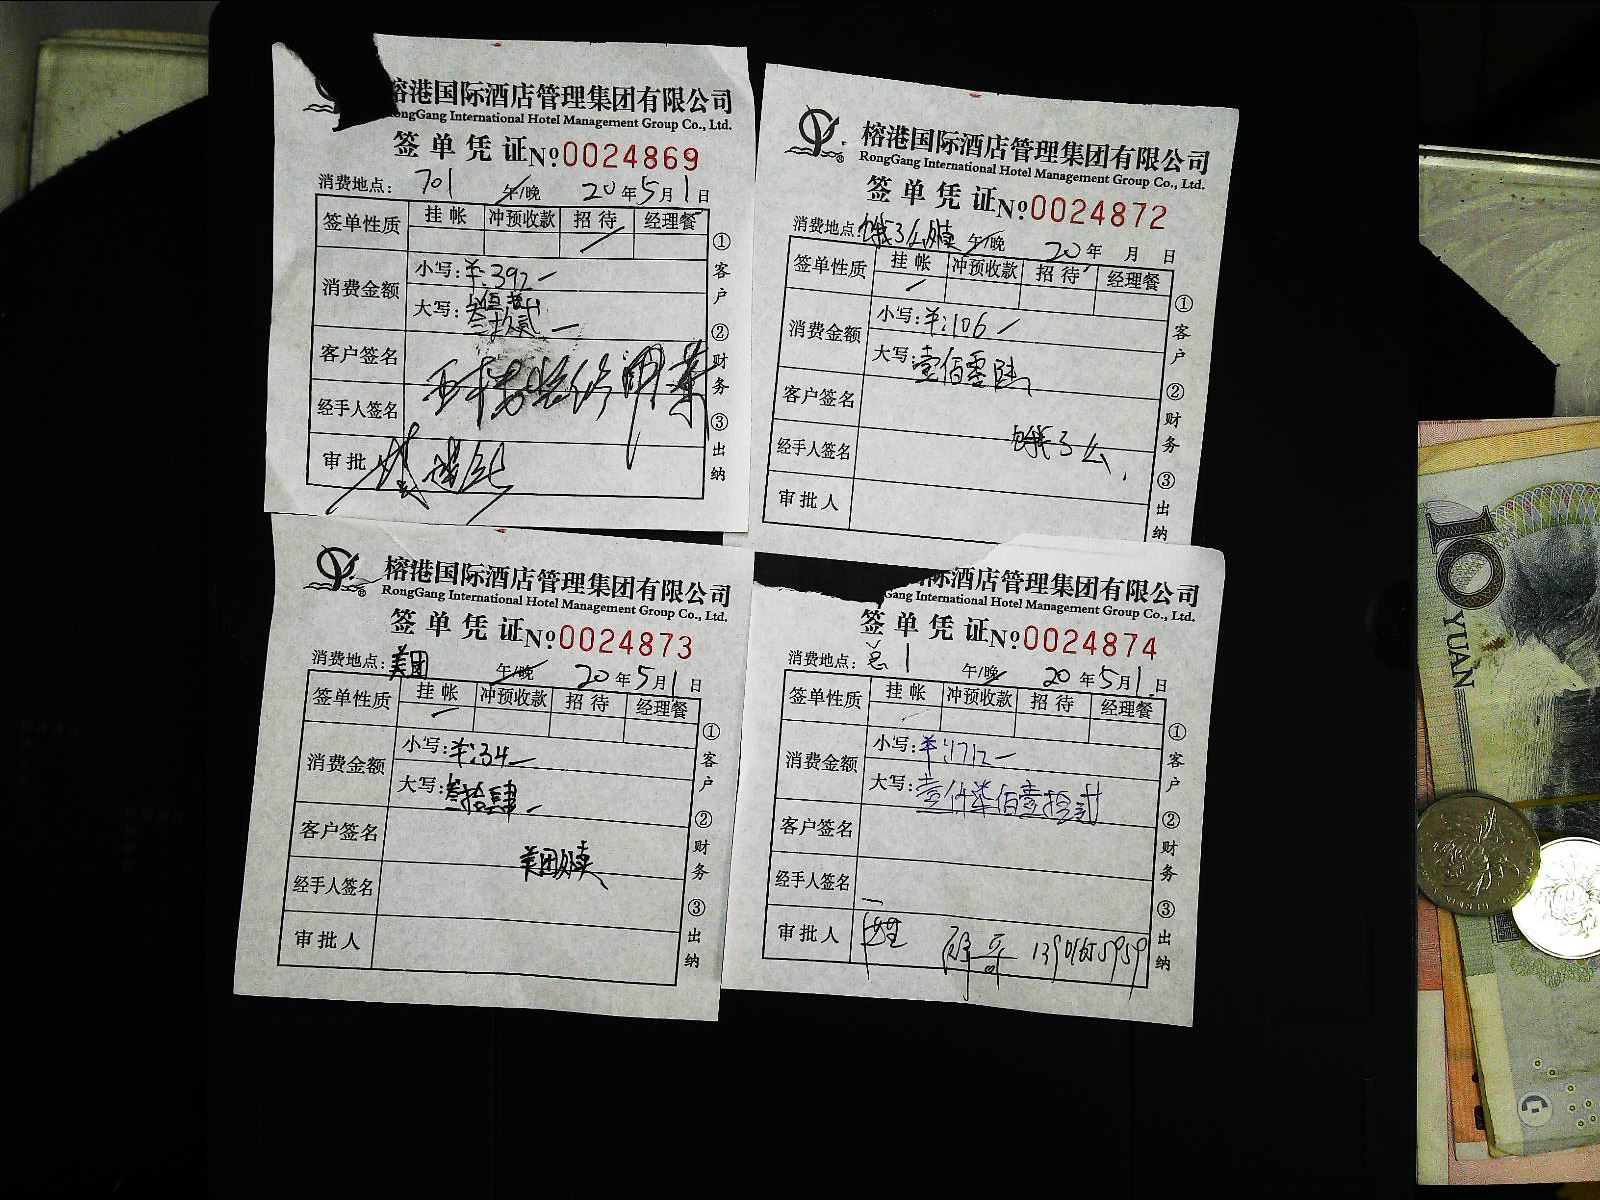 榕港国际酒店管理集团有限公司
RongGang International Hotel Management Group Co., Ltd.
签单凭证 №0024869
消费地点: 701 午/晚 20年5月1日
签单性质 挂帐 冲预收款 招待 经理餐
消费金额 小写:¥:392
大写:叁佰
玖拾贰
客户签名
经手人签名
审批
①客户 ②财务 ③出纳
榕港国际酒店管理集团有限公司
RongGang International Hotel Management Group Co., Ltd.
签单凭证 №0024872
消费地点: 饿了么 午/晚 20年 月 日
签单性质 挂帐 冲预收款 招待 经理餐
消费金额 小写:¥:106
大写:壹佰零陆
客户签名
经手人签名 饿了么
审批人
①客户 ②财务 ③出纳
榕港国际酒店管理集团有限公司
RongGang International Hotel Management Group Co., Ltd.
签单凭证 №0024873
消费地点: 美团 午/晚 20年5月1日
签单性质 挂帐 冲预收款 招待 经理餐
消费金额 小写:¥:34
大写:叁拾肆
客户签名
美团
经手人签名
审批人
①客户 ②财务 ③出纳
际酒店管理集团有限公司
Gang International Hotel Management Group Co., Ltd.
签单凭证 №0024874
消费地点: 总1 午/晚 20年5月1日
签单性质 挂帐 冲预收款 招待 经理餐
消费金额 小写:¥:1712
大写:壹仟柒佰壹拾贰
客户签名
经手人签名
审批人
①客户 ②财务 ③出纳
10 YUAN